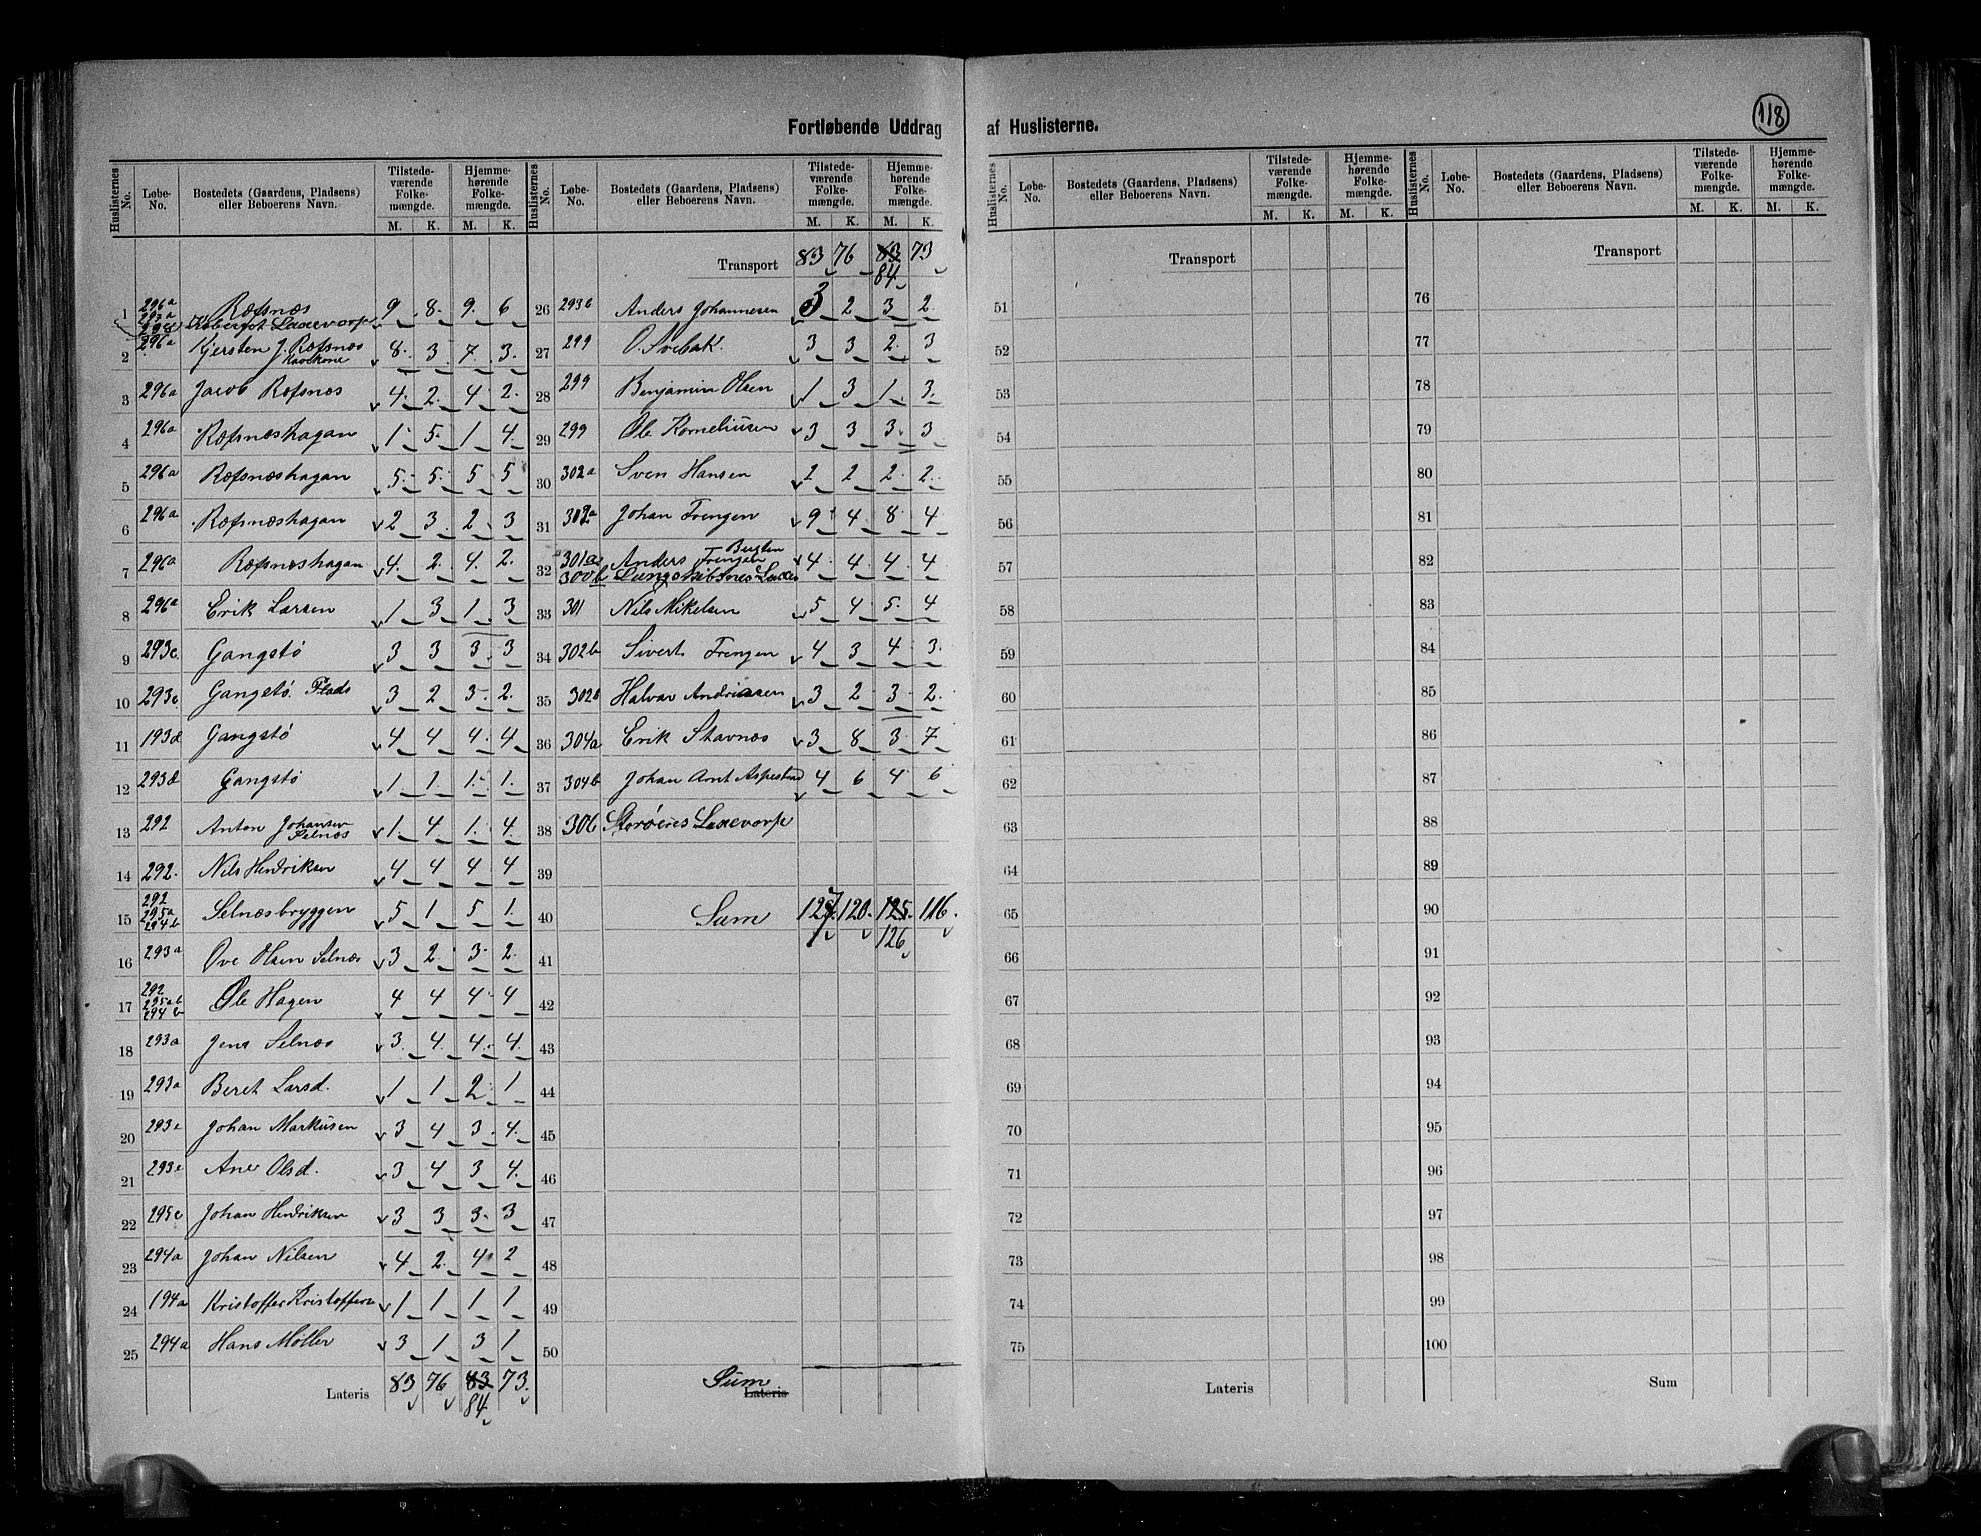 118
Fortløbende Uddrag af Huslisterne.
Huslisternes No. | Løbe-No. | Bostedets (Gaardens, Pladsens) eller Beboerens Navn. | Tilstedeværende Folkemængde. M. K. | Hjemmehørende Folkemængde. M. K.
1 296a Ræfsnæs 9 8 9 6
2 296a Kjersten J. Ræfsnæs 8 3 7 3
3 296a Jacob Ræfsnæs 4 2 4 2
4 296a Ræfsnæshagan 1 5 1 4
5 296a Ræfsnæshagan 5 5 5 5
6 296a Ræfsnæshagan 2 3 2 3
7 296a Ræfsnæshagan 4 2 4 2
8 296a Erik Larsen 1 3 1 3
9 293c Gangstø 3 3 3 3
10 293c Gangstø Plads 3 2 3 2
11 193d Gangstø 4 4 4 4
12 293d Gangstø 1 1 1 1
13 292 Anton Johansen Selnæs 1 4 1 4
14 292 Nils Henriksen 4 4 4 4
15 292 295a 294b Selnæsbryggen 5 1 5 1
16 293a Ove Olsen Selnæs 3 2 3 2
17 292 295ab 294b Ole Hagen 4 4 4 4
18 293a Jens Selnæs 3 4 4 4
19 293a Beret Larsd. 1 1 2 1
20 293e Johan Markusen 3 4 3 4
21 293e Ane Olsd. 3 4 3 4
22 295c Johan Henriksen 3 3 3 3
23 294a Johan Nilsen 4 2 4 2
24 194a Kristoffer Kristoffersen 1 1 1 1
25 294a Hans Møller 3 1 3 1
Lateris 83 76 83 73
84
Huslisternes No. | Løbe-No. | Bostedets (Gaardens, Pladsens) eller Beboerens Navn. | Tilstedeværende Folkemængde. M. K. | Hjemmehørende Folkemængde. M. K.
Transport 83 76 83 73
84
26 293b Anders Johannesen 3 2 3 2
27 299 O. Svebak 3 3 2 3
28 299 Benjamin Olsen 1 3 1 3
29 299 Ole Korneliusen 3 3 3 3
30 302a Sven Hansen 2 2 2 2
31 302a Johan Frengen 9 4 8 4
32 301a Anders Frengen Bugten 4 4 4 4
300b
33 301 Nils Mikelsen 5 4 5 4
34 302b Sivert Frengen 4 3 4 3
35 302b Halvar Andriasen 3 2 3 2
36 304a Erik Stavnæs 3 8 3 7
37 304b Johan Arnt Aspestrad 4 6 4 6
38 306 Storøens Laxevorp
39
40 Sum 127 120 125 116
126
41
42
43
44
45
46
47
48
49
50
Sum
Lateris
Huslisternes No. | Løbe-No. | Bostedets (Gaardens, Pladsens) eller Beboerens Navn. | Tilstedeværende Folkemængde. M. K. | Hjemmehørende Folkemængde. M. K.
Transport
51
52
53
54
55
56
57
58
59
60
61
62
63
64
65
66
67
68
69
70
71
72
73
74
75
Lateris
Huslisternes No. | Løbe-No. | Bostedets (Gaardens, Pladsens) eller Beboerens Navn. | Tilstedeværende Folkemængde. M. K. | Hjemmehørende Folkemængde. M. K.
Transport
76
77
78
79
80
81
82
83
84
85
86
87
88
89
90
91
92
93
94
95
96
97
98
99
100
Sum